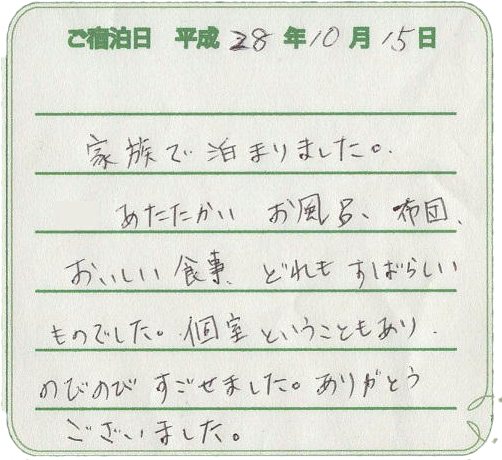 ご宿泊日 平成 28 年 10 月 15 日
家族で泊まりました。
あたたかい お風呂、布団、
おいしい食事、どれも すばらしい
ものでした。個室ということもあり、
のびのび すごせました。ありがとう
ございました。